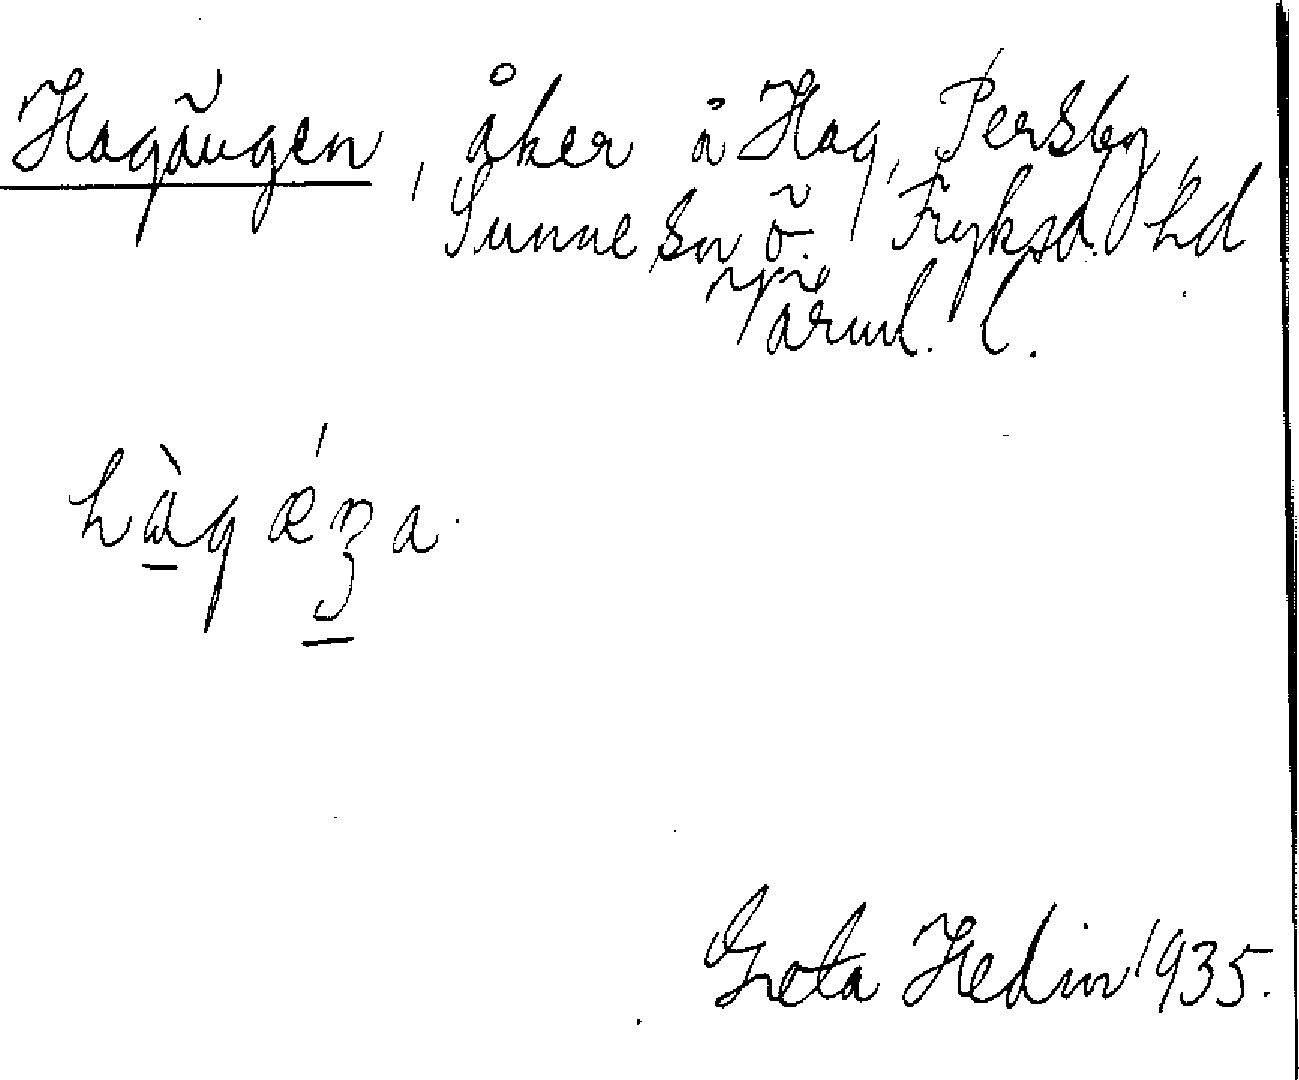 Hagängen, åker å Hag, Persby,
Sunne sn ö. Fryksd. hd
Värml. l.
hàg ǽŋa
Greta Hedin 1935.